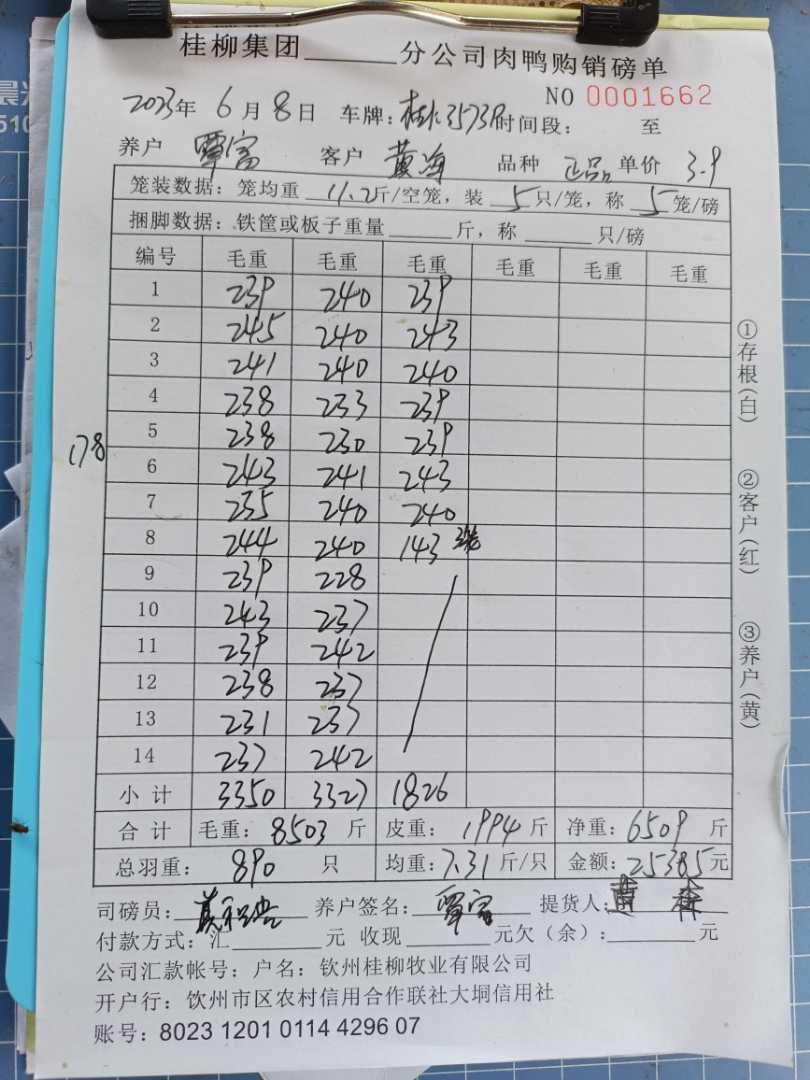 桂柳集团______分公司肉鸭购销磅单
NO 0001662
2023年 6 月 8 日 车牌:桂 时间段: 至
养户 覃富 客户 黄海 品种 正品 单价 3.9
笼装数据:笼均重 11.2斤/空笼,装 5 只/笼,称 5 笼/磅
捆脚数据:铁筐或板子重量______斤,称______只/磅
编号 毛重 毛重 毛重 毛重 毛重 毛重
1 239 240 239
2 245 240 243
3 241 240 240
4 238 233 239
5 238 230 239
178
6 243 241 243
7 235 240 240
8 244 240 143
9 239 228
10 243 237
11 239 242
12 238 237
13 231 237
14 237 242
小计 3350 3327 1826
合计 毛重: 8503 斤 皮重: 1994 斤 净重: 6509 斤
总羽重: 890 只 均重: 7.31 斤/只 金额: 25385 元
司磅员: 养户签名: 覃富 提货人:
付款方式:汇______元 收现______元欠(余):______元
公司汇款帐号:户名:钦州桂柳牧业有限公司
开户行:饮州市区农村信用合作联社大垌信用社
账号:8023 1201 0114 4296 07
①存根(白)
②客户(红)
③养户(黄)